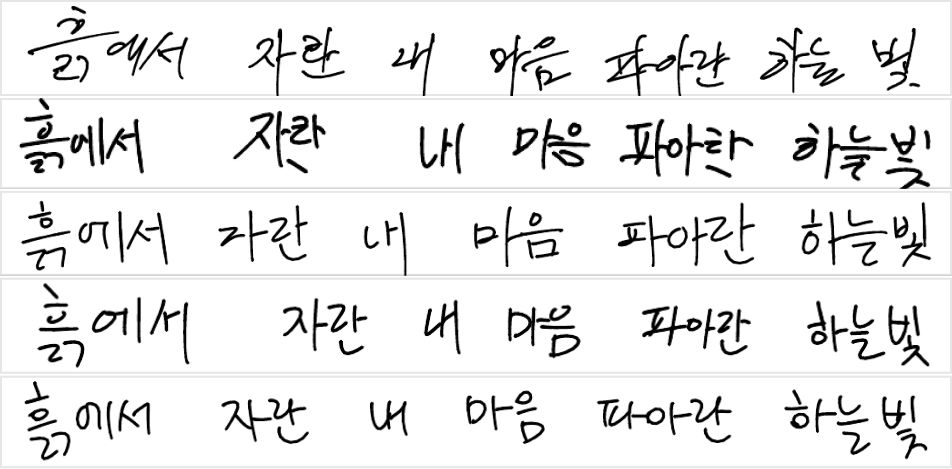 흙에서 자란 내 마음 파아란 하늘 빛
흙에서 자란 내 마음 파아란 하늘빛
흙에서 자란 내 마음 파아란 하늘빛
흙에서 자란 내 마음 파아란 하늘빛
흙에서 자란 내 마음 파아란 하늘빛